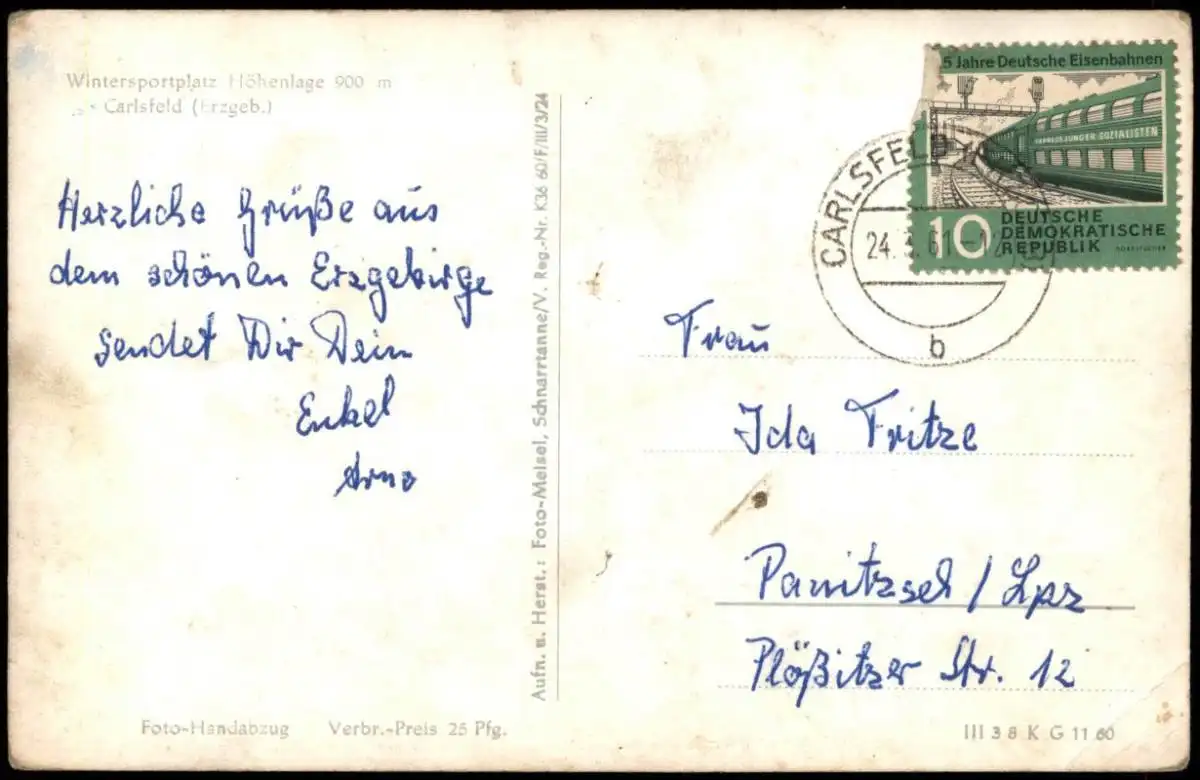 Wintersportplatz Höhenlage 900 m
Carlsfeld (Erzgeb.)
Herzliche Grüße aus
dem schönen Erzgebirge
sendet Dir Dein
Enkel
Arno
Foto-Handabzug Verbr.-Preis 25 Pfg.
Aufn. u. Herst.: Foto-Meisel, Schnarrtanne/V. Reg.-Nr. K36 60/F/III/3/24
5 Jahre Deutsche Eisenbahnen
EXPRESS JUNGER SOZIALISTEN
10 DEUTSCHE
DEMOKRATISCHE
REPUBLIK
CARLSFELD
24.3.61-12
b
Frau
Ida Fritze
Panitzsch / Lpz
Plößitzer Str. 12
III 3 8 K G 11 60